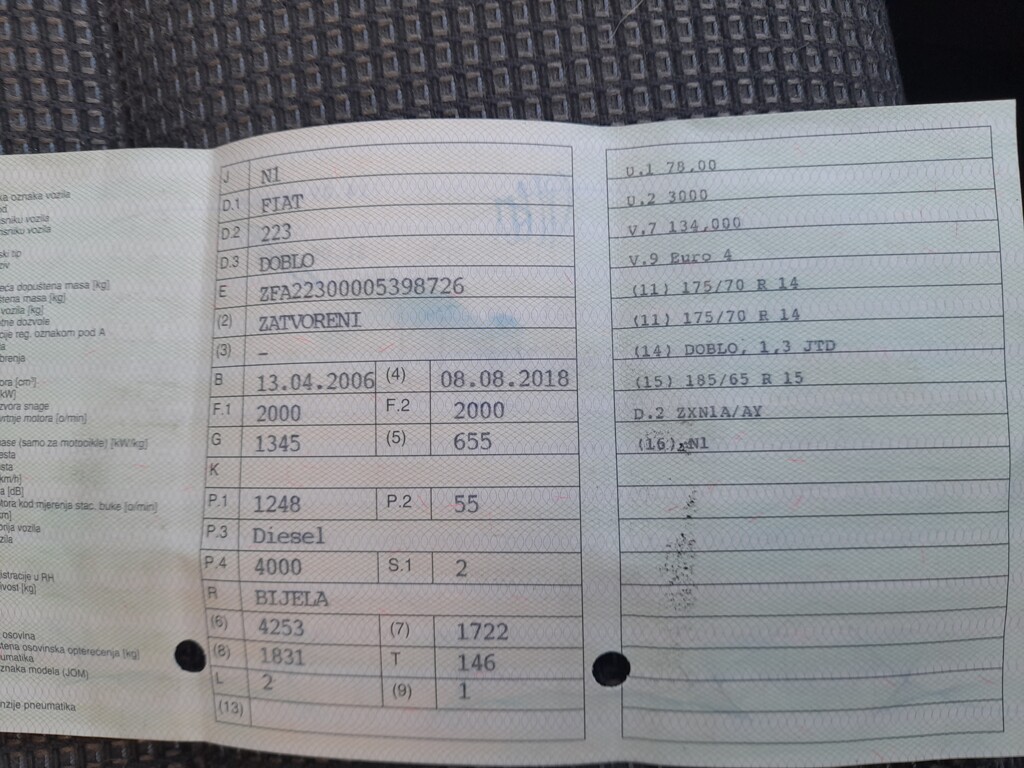 ka oznaka vozila
sniku vozila
sniku vozila
ski tip
eća dopuštena masa [kg]
štena masa [kg]
vozila [kg]
tne dozvole
cije reg. oznakom pod A
brenja
ora [cm³]
kW]
zvora snage
vrtnje motora [o/min]
ase (samo za motocikle) [kW/kg]
esta
esta
km/h]
a [dB]
tora kod mjerenja stac. buke [o/min]
onja vozila
zila
istracije u RH
ivost [kg]
osovina
štena osovinska opterećenja [kg]
umatika
znaka modela (JOM)
nzije pneumatika
J N1
D.1 FIAT
D.2 223
D.3 DOBLO
E ZFA22300005398726
(2) ZATVORENI
(3) –
B 13.04.2006 (4) 08.08.2018
F.1 2000 F.2 2000
G 1345 (5) 655
K
P.1 1248 P.2 55
P.3 Diesel
P.4 4000 S.1 2
R BIJELA
(6) 4253 (7) 1722
(8) 1831 T 146
L 2 (9) 1
(13)
U.1 78,00
U.2 3000
V.7 134,000
V.9 Euro 4
(11) 175/70 R 14
(11) 175/70 R 14
(14) DOBLO, 1,3 JTD
(15) 185/65 R 15
D.2 ZXN1A/AY
(16) N1